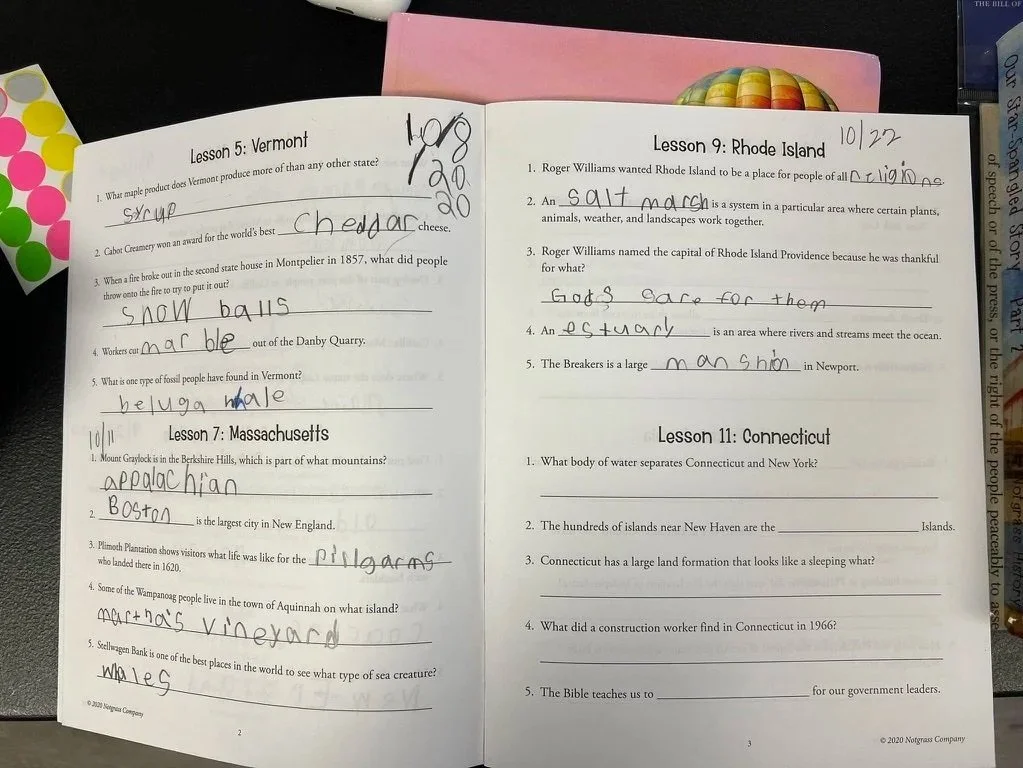 THE BILL OF
Lesson 5: Vermont
10/8
/20
20
1. What maple product does Vermont produce more of than any other state?
syrup
2. Cabot Creamery won an award for the world's best cheddar cheese.
3. When a fire broke out in the second state house in Montpelier in 1857, what did people
throw onto the fire to try to put it out?
snow balls
4. Workers cut marble out of the Danby Quarry.
5. What is one type of fossil people have found in Vermont?
beluga whale
10/11
Lesson 7: Massachusetts
1. Mount Graylock is in the Berkshire Hills, which is part of what mountains?
appalachian
2. Boston is the largest city in New England.
3. Plimoth Plantation shows visitors what life was like for the pillgarms
who landed there in 1620.
4. Some of the Wampanoag people live in the town of Aquinnah on what island?
martha's vineyard
5. Stellwagen Bank is one of the best places in the world to see what type of sea creature?
whales
© 2020 Notgrass Company
2
Lesson 9: Rhode Island
10/22
1. Roger Williams wanted Rhode Island to be a place for people of all religions.
2. An salt marsh is a system in a particular area where certain plants,
animals, weather, and landscapes work together.
3. Roger Williams named the capital of Rhode Island Providence because he was thankful
for what?
Gods care for them
4. An estuary is an area where rivers and streams meet the ocean.
5. The Breakers is a large manshion in Newport.
Lesson 11: Connecticut
1. What body of water separates Connecticut and New York?
2. The hundreds of islands near New Haven are the Islands.
3. Connecticut has a large land formation that looks like a sleeping what?
4. What did a construction worker find in Connecticut in 1966?
5. The Bible teaches us to for our government leaders.
3
© 2020 Notgrass Company
Our Star-Spangled Story Part
Notgrass History
of speech or of the press, or the right of the people peaceably to asse